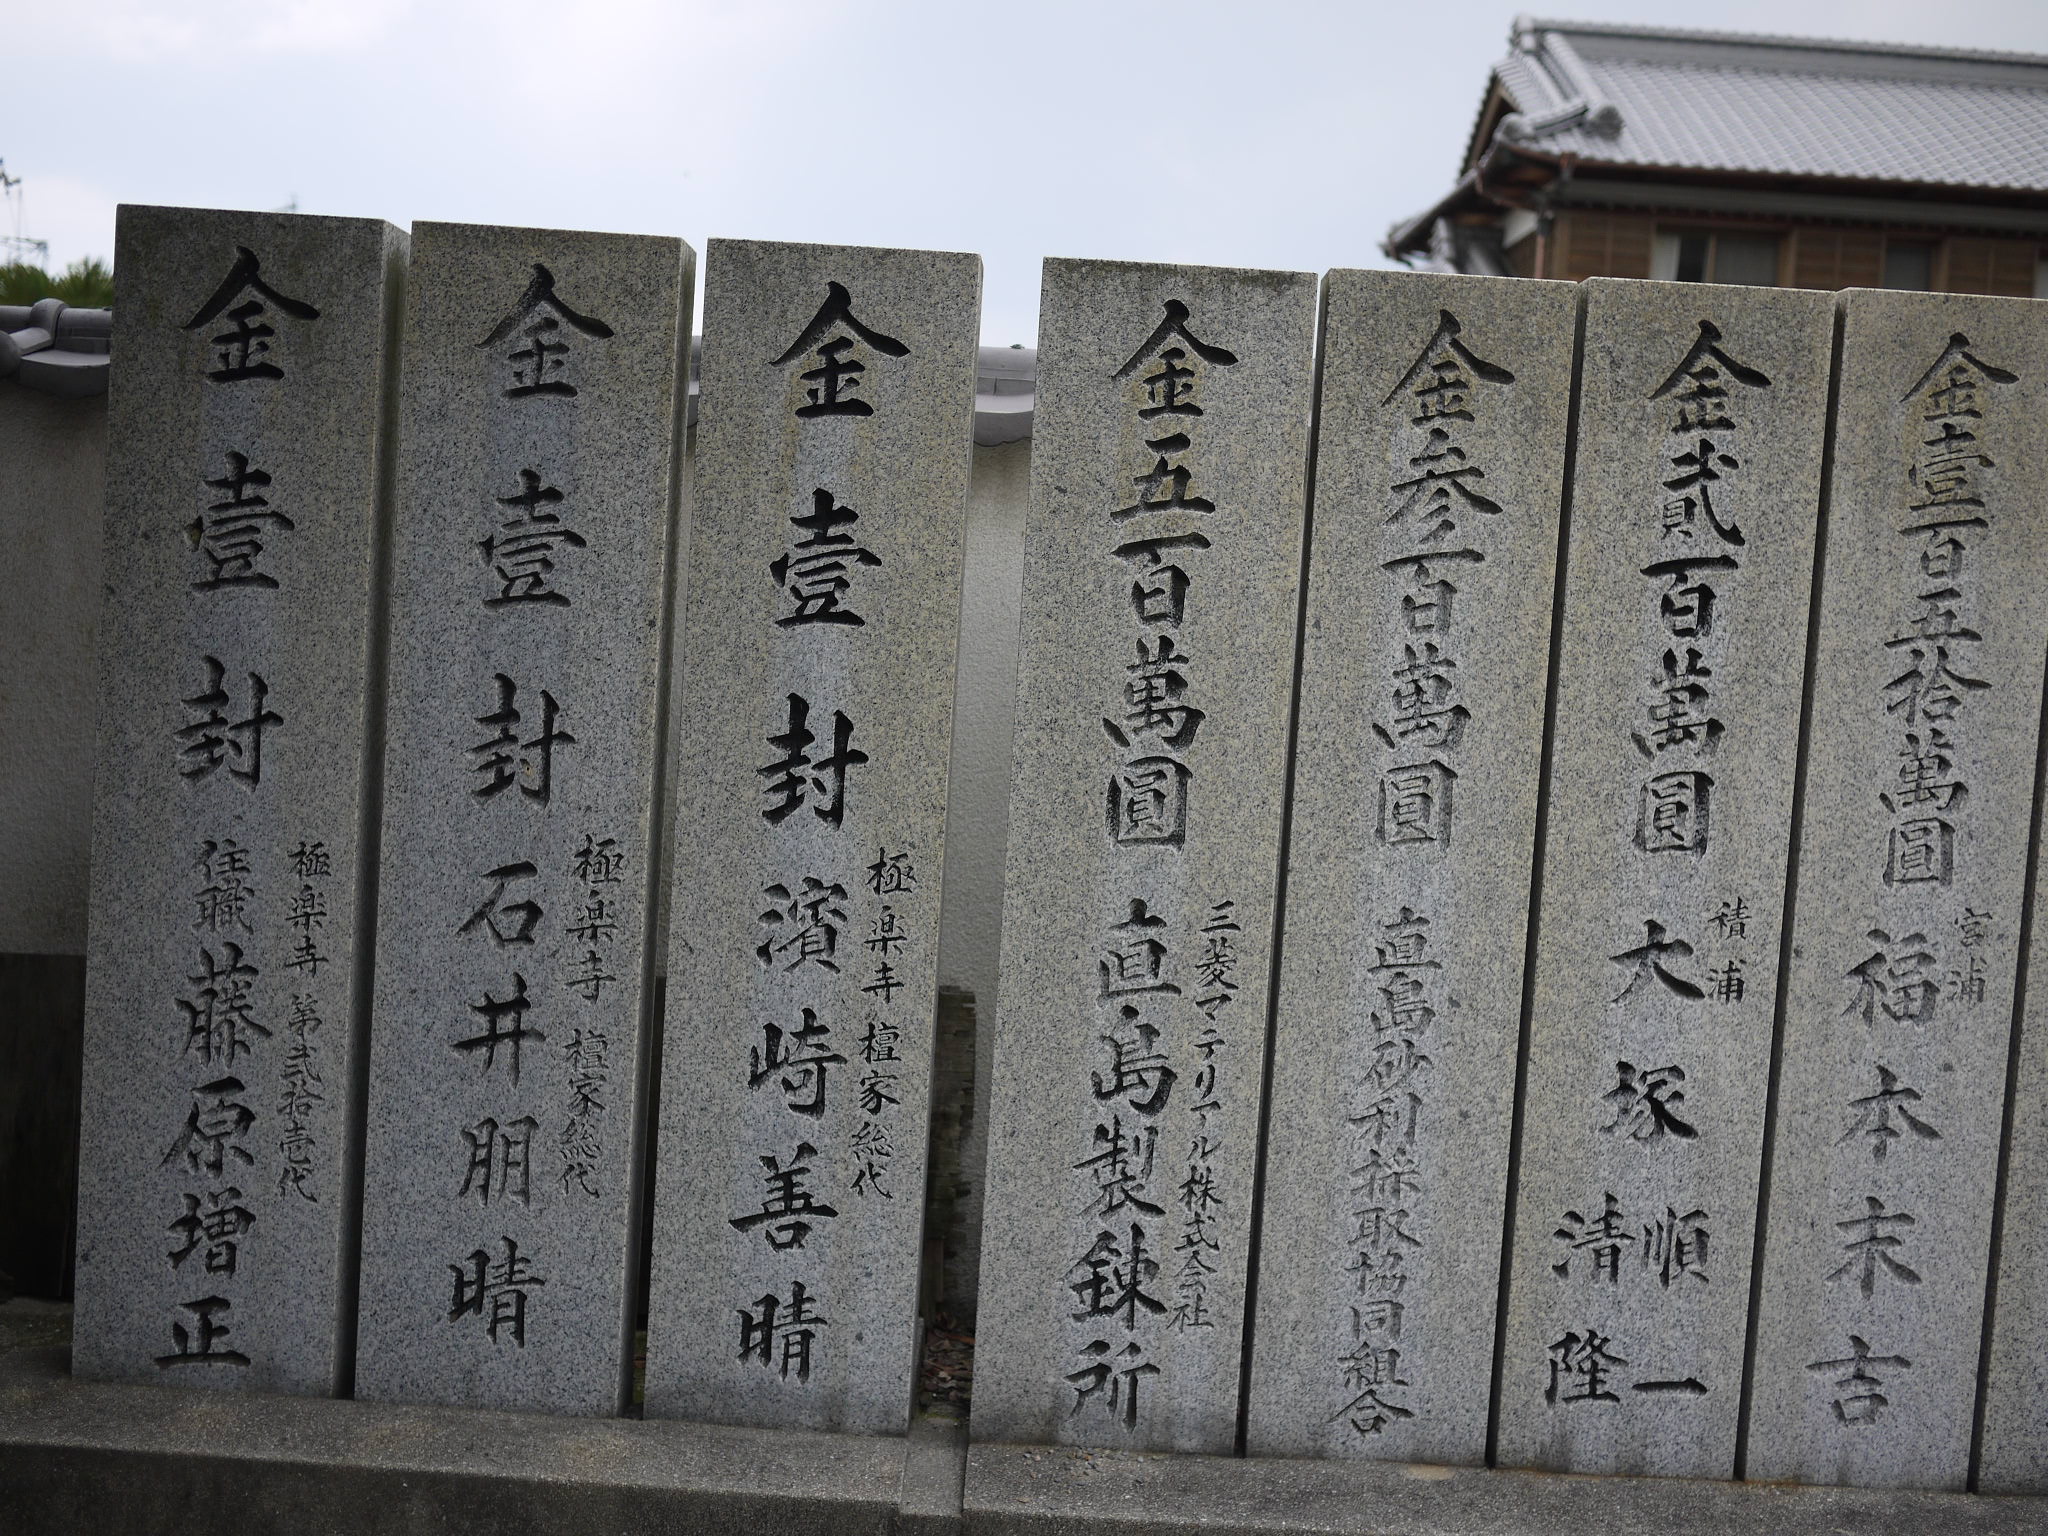 金壹百五拾萬圓
宮浦
福本末吉
金貳百萬圓
積浦
大塚
順一
清隆
金参百萬圓
直島砂利採取協同組合
金五百萬圓
三菱マテリアル株式会社
直島製錬所
金壹封
極楽寺 檀家総代
濱崎善晴
金壹封
極楽寺 檀家総代
石井朋晴
金壹封
極楽寺 第弐拾壱代
住職 藤原増正